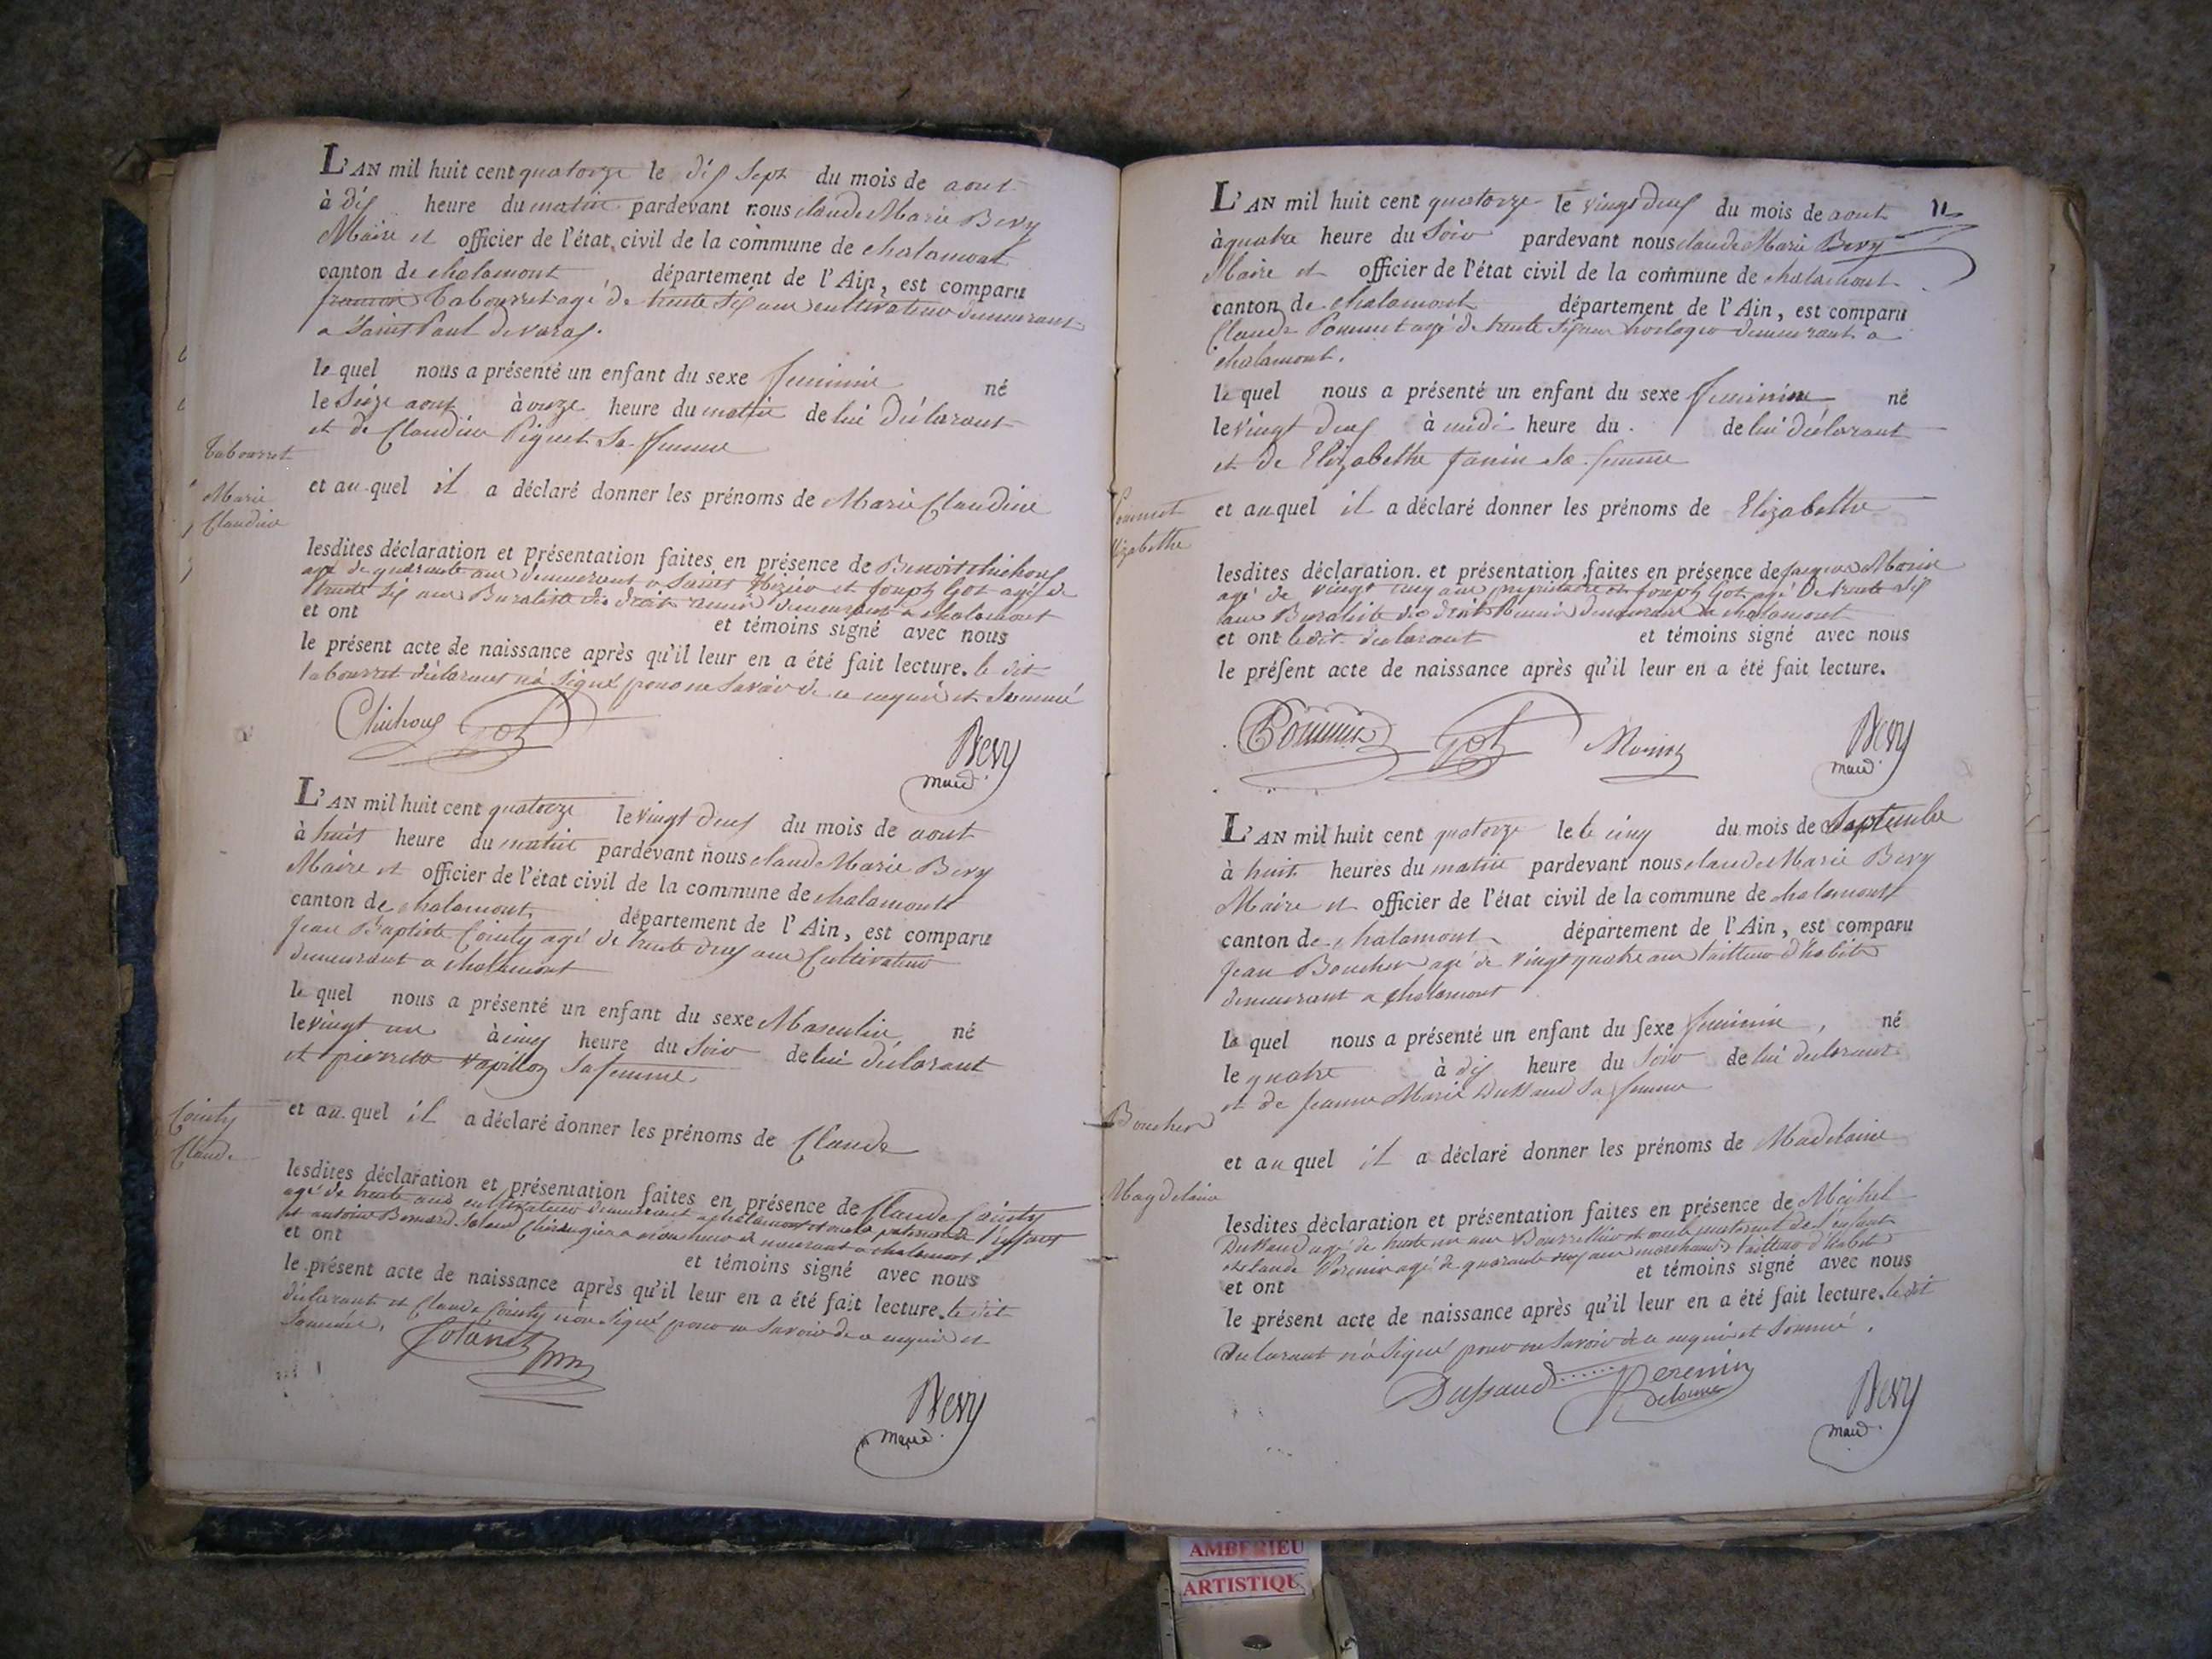 L'AN mil huit cent quatorze le dix sept du mois de aout
à dix heure du matin pardevant nous claude Marie Bevy
Maire et officier de l'état civil de la commune de chalamont
canton de chalamont, département de l'Ain, est comparu
Tabourret agé de trente six ans cultivateur demeurant
a Saint Paul de Varax.
le quel nous a présenté un enfant du sexe feminin né
le Seize aout à onze heure du matin de lui déclarant
et de Claudine Piquet Sa femme
Tabourret
et au quel il a déclaré donner les prénoms de Marie Claudine
Marie
Claudine
lesdites déclaration et présentation faites en présence de Benoit chichoux
agé de quarante ans demeurant a Saint Nizier et Joseph Got agé de
trente six ans Buraliste des droits reunis demeurant a chalamont
et ont et témoins signé avec nous
le présent acte de naissance après qu'il leur en a été fait lecture. le dit
tabourret déclarant n'a Signé pour ne Savoir de ce enquis et Sommé
Chichoux Got
Bevy
maire
L'AN mil huit cent quatorze le vingt deux du mois de aout
à huit heure du matin pardevant nous claude Marie Bevy
Maire et officier de l'état civil de la commune de chalamont
canton de chalamont, département de l'Ain, est comparu
Jean Baptiste Cointy agé de trente deux ans Cultivateur
demeurant a chalamont
le quel nous a présenté un enfant du sexe Masculin né
le vingt un à cinq heure du Soir de lui déclarant
et pierrette papillon Sa femme
Cointy
et au quel il a déclaré donner les prénoms de Claude
Claude
lesdites déclaration et présentation faites en présence de Claude Cointy
agé de trente ans cultivateur demeurant a chalamont et oncle paternel de l'enfant
et antoine Bernard demeurant a chalamont.
et ont et témoins signé avec nous
le présent acte de naissance après qu'il leur en a été fait lecture. le dit
déclarant et Claude Cointy n'on Signé pour ne Savoir de ce enquis et
Sommé.
Bevy
maire
11
L'AN mil huit cent quatorze le vingt deux du mois de aout
à quatre heure du Soir pardevant nous claude Marie Bevy
Maire et officier de l'état civil de la commune de chalamont
canton de chalamont département de l'Ain, est comparu
Claude Pommet agé de trente six ans horloger demeurant a
chalamont.
le quel nous a présenté un enfant du sexe feminin né
le vingt deux à midi heure du . de lui déclarant
et de Elizabethe Janin Sa femme
Pommet
et auquel il a déclaré donner les prénoms de Elizabethe
Elizabethe
lesdites déclaration. et présentation faites en présence de Jacques Morin
agé de vingt cinq ans proprietaire et Joseph Got agé De trente six
ans Buraliste des droits Reunis demeurant a chalamont
et ont le dit declarant et témoins signé avec nous
le présent acte de naissance après qu'il leur en a été fait lecture.
Got Morin
Bevy
maire
L'AN mil huit cent quatorze le le cinq du mois de Septembre
à huit heures du matin pardevant nous claude Marie Bevy
Maire et officier de l'état civil de la commune de chalamont
canton de chalamont département de l'Ain, est comparu
Jean Boucher agé de vingt quatre ans tailleur d'habits
demeurant a chalamont
le quel nous a présenté un enfant du sexe feminin, né
le quatre à dix heure du Soir de lui déclarant
et de Jeanne Marie Dussaud Sa femme
Boucher
et au quel il a déclaré donner les prénoms de Madelaine
Magdelaine
lesdites déclaration et présentation faites en présence de Michel
Dussaud agé de trente un ans Bourrellier et oncle maternel de l'enfant
et claude Perenin agé de quarante six ans marchand tailleur d'habit
et ont et témoins signé avec nous
le présent acte de naissance après qu'il leur en a été fait lecture. le dit
déclarant n'a Signé pour ne Savoir de ce enquis et Sommé.
Dussaud Perenin
Bevy
maire
AMBERIEU
ARTISTIQUE